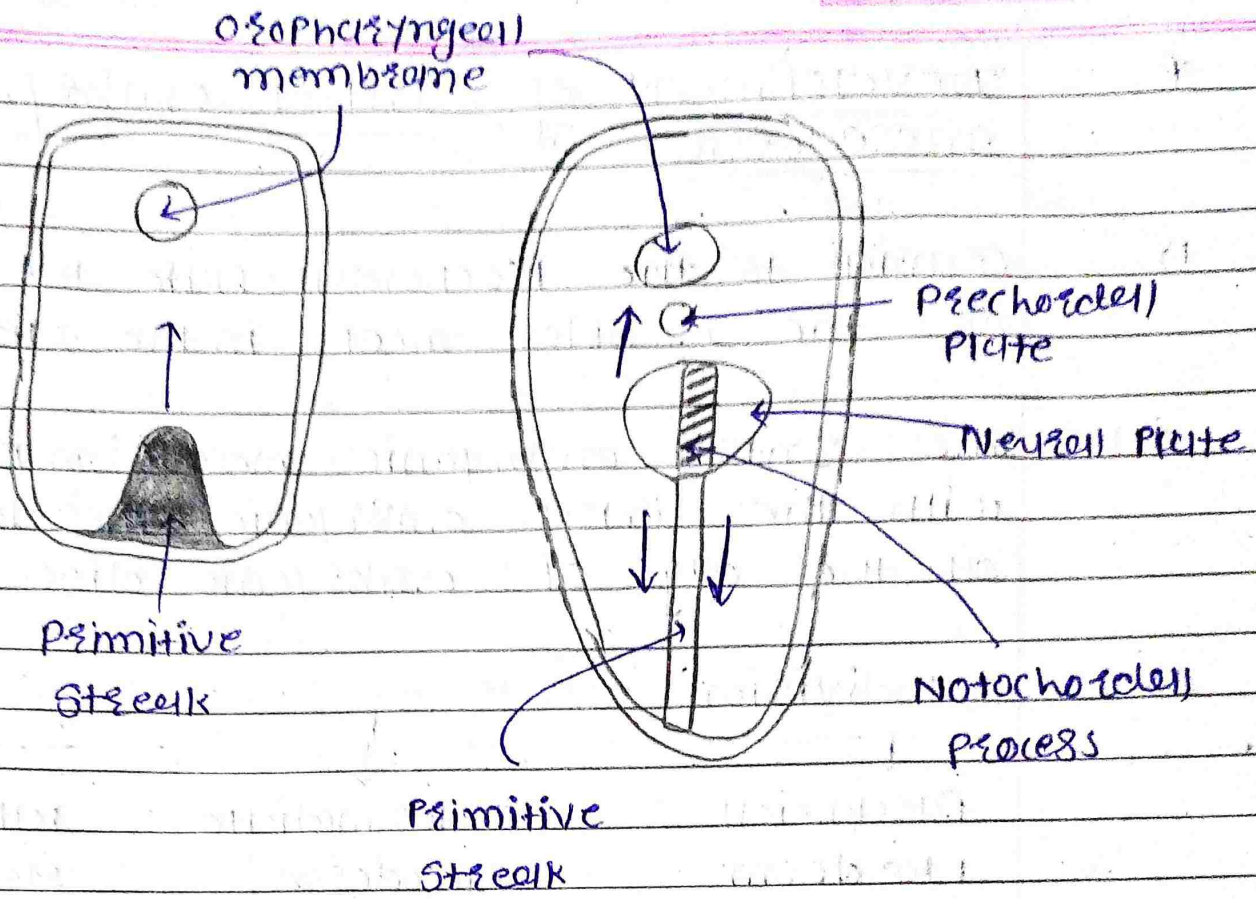 Oropharyngeal
membrane
Prechordal
Plate
Neural Plate
Primitive
Streak
Notochordal
Process
Primitive
Streak